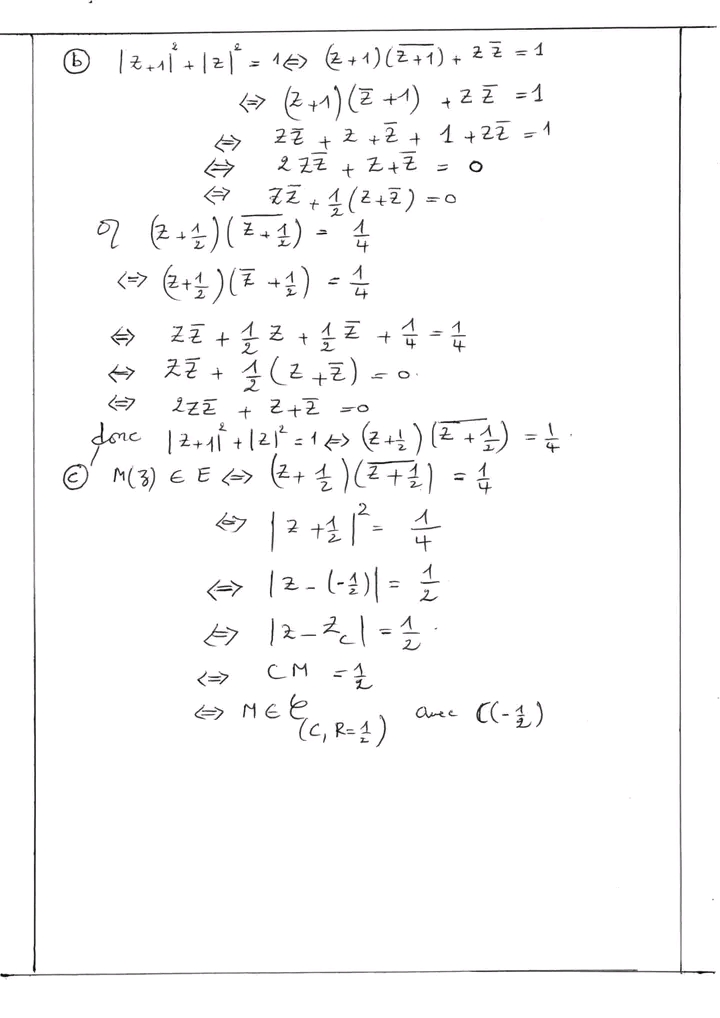 ⓑ |z+1|² + |z|² = 1 ⇔ (z+1)(z̅+̅1̅) + z z̄ = 1
⇔ (z+1)(z̄+1) + z z̄ = 1
⇔ z z̄ + z + z̄ + 1 + z z̄ = 1
⇔ 2 z z̄ + z + z̄ = 0
⇔ z z̄ + 1/2 (z + z̄) = 0
or (z + 1/2)(z̅ ̅+̅ ̅1̅/̅2̅) = 1/4
⇔ (z + 1/2)(z̄ + 1/2) = 1/4
⇔ z z̄ + 1/2 z + 1/2 z̄ + 1/4 = 1/4
⇔ z z̄ + 1/2 (z + z̄) = 0.
⇔ 2 z z̄ + z + z̄ = 0
donc |z+1|² + |z|² = 1 ⇔ (z + 1/2)(z̅ ̅+̅ ̅1̅/̅2̅) = 1/4.
ⓒ M(z) ∈ E ⇔ (z + 1/2)(z̅ ̅+̅ ̅1̅/̅2̅) = 1/4
⇔ |z + 1/2|² = 1/4
⇔ |z - (-1/2)| = 1/2
⇔ |z - z_C| = 1/2.
⇔ CM = 1/2
⇔ M ∈ 𝒞(C, R = 1/2) avec C(-1/2)